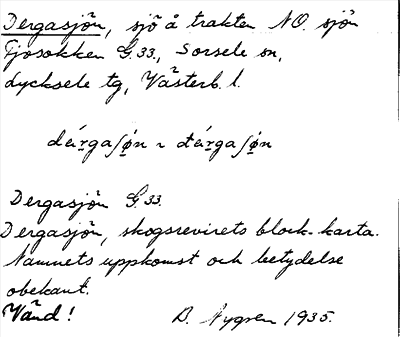 Dergasjön, sjö å trakten NO. sjön
Tjosokken G.33., Sorsele sn,
Lycksele tg, Västerb. l.
dérgaʃøn ~ dérgaʃøn
Dergasjön G.33.
Dergasjön, skogsrevirets block-karta.
Namnets uppkomst och betydelse
obekant.
Vänd!
B. Nygren 1935.